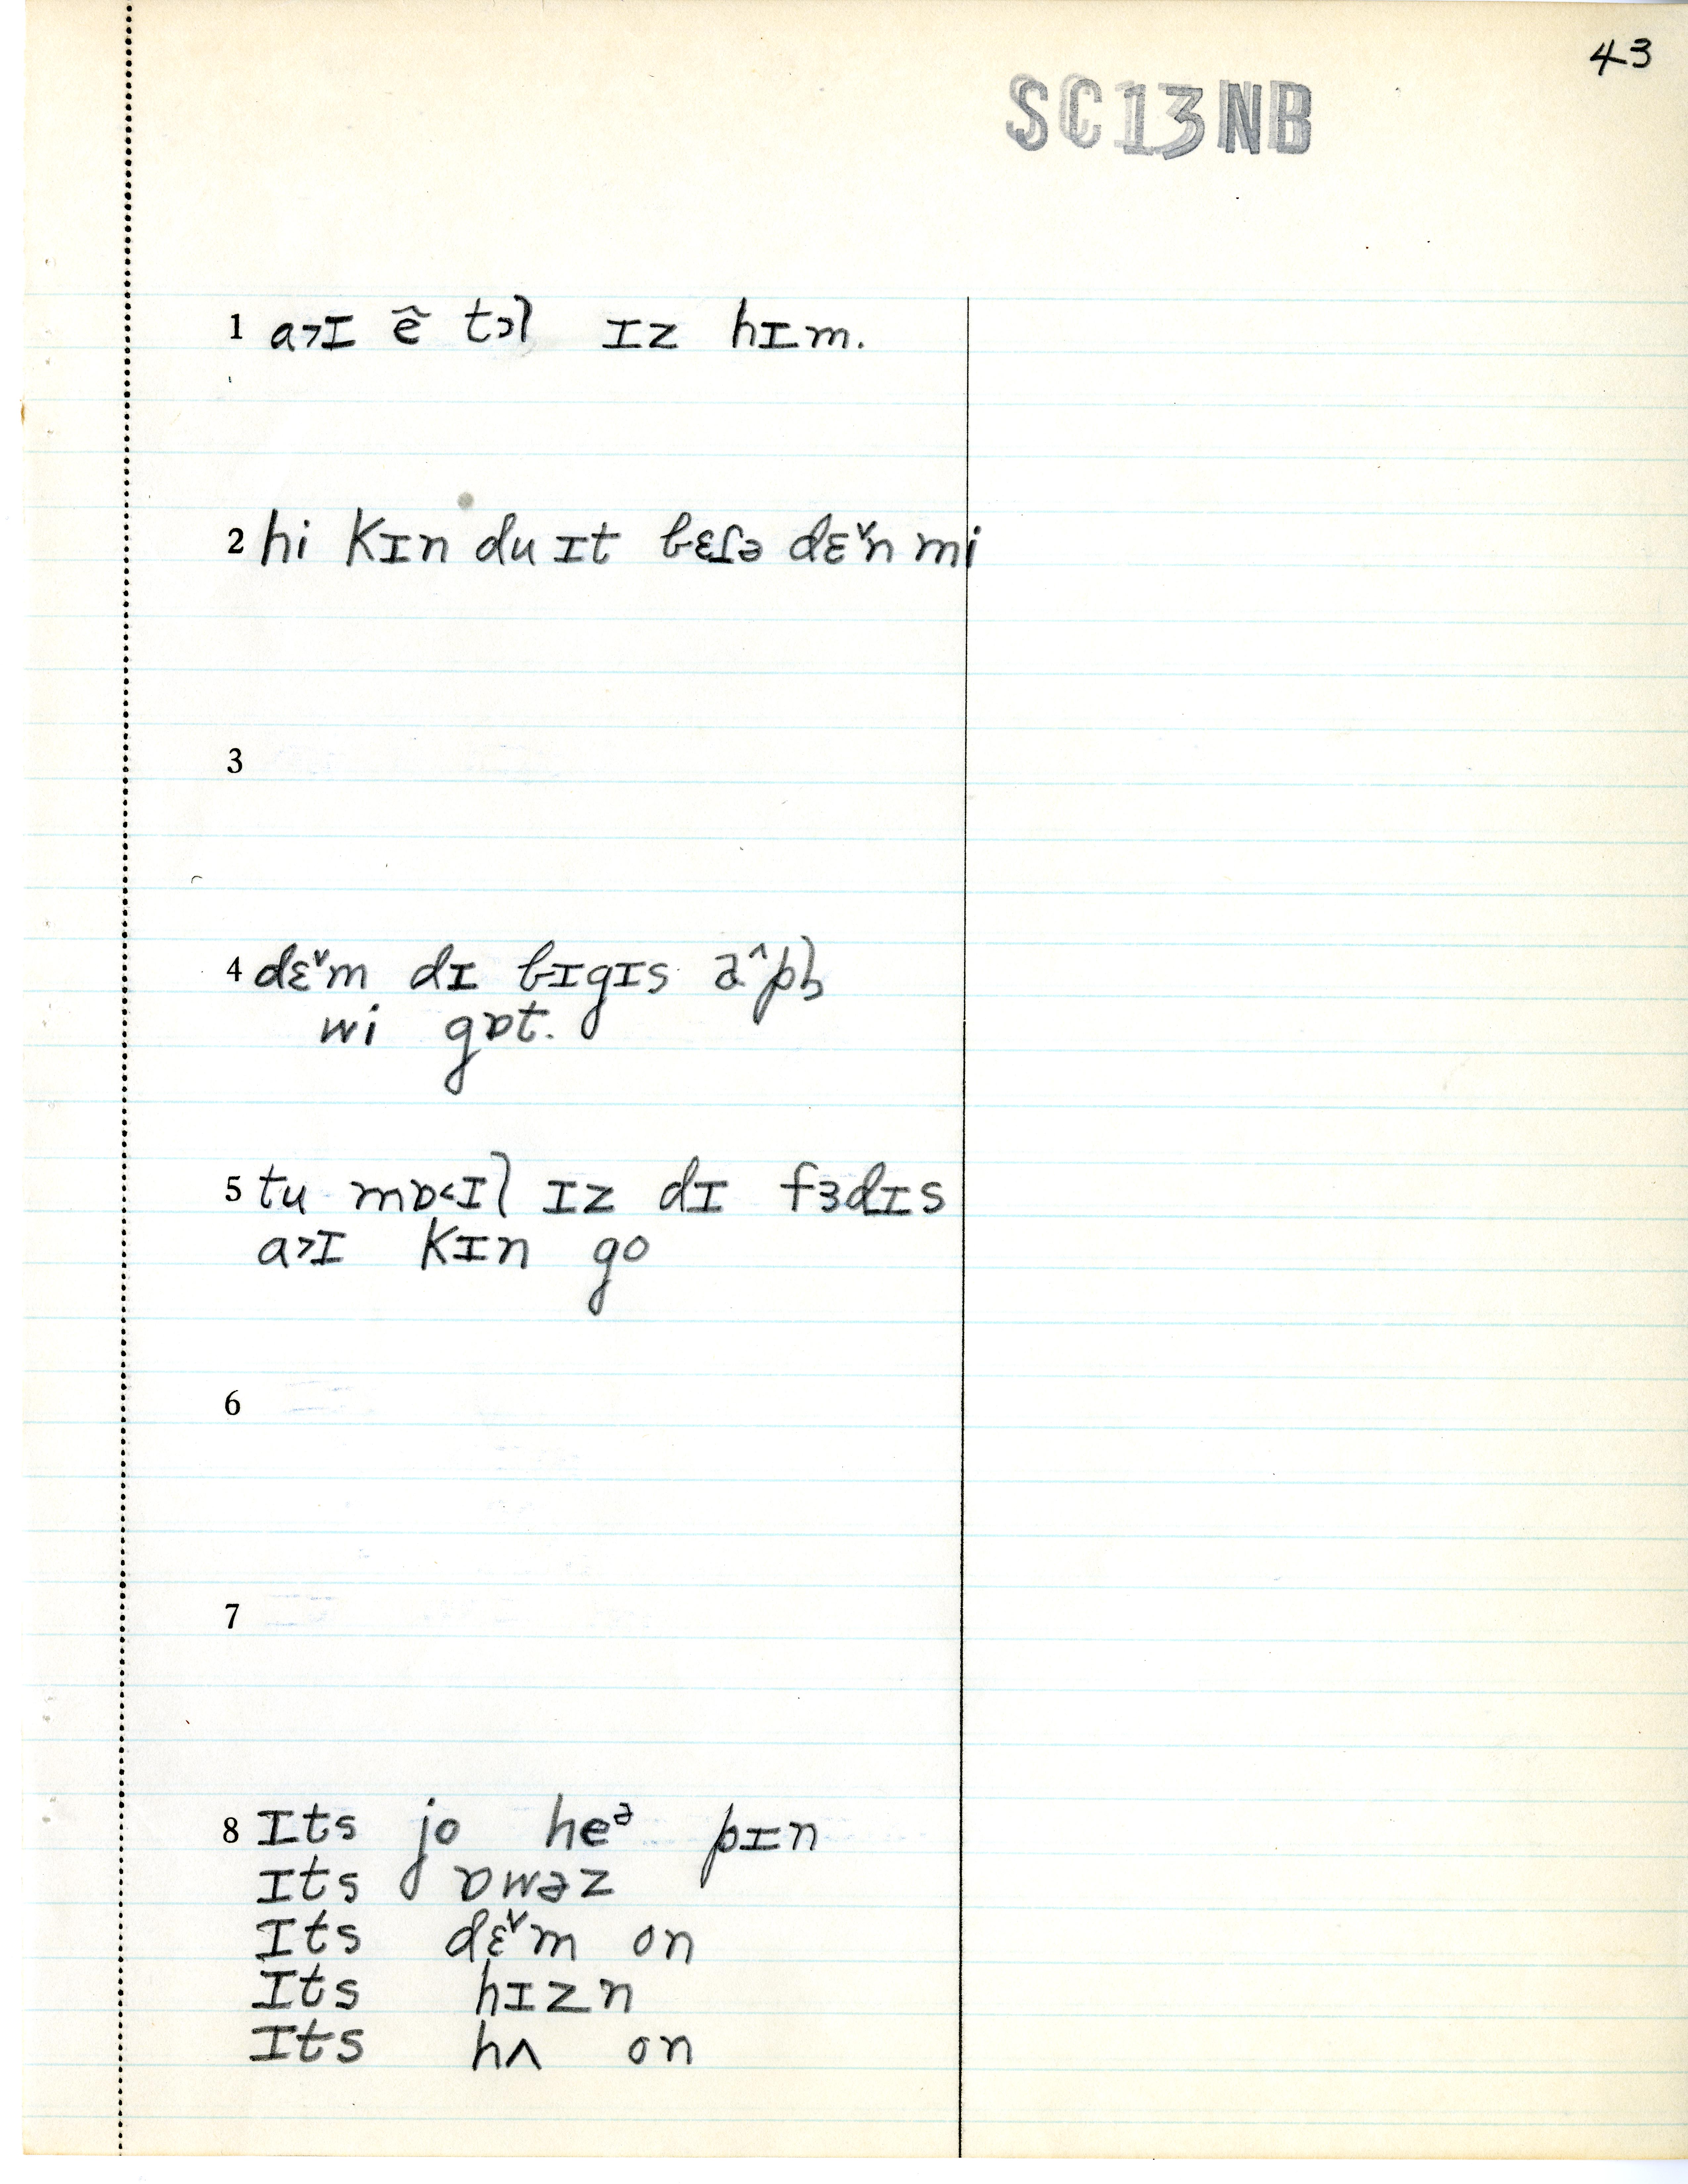 43
SC13NB
1 a˃ɪ ẽ̂ tɔl ɪz hɪm.
2 hi kɪn du ɪt bɛɾə dɛ˅n mi
3
4 dɛ˅m dɪ bɪgɪs
wi gɒt.
5 tu mɒ˂ɪl ɪz dɪ fɜdɪs
a˃ɪ kɪn go
6
7
8 ɪts jo heᵊ pɪn
ɪts ɒwəz
ɪts dɛ˅m on
ɪts hɪzn
ɪts hʌ on